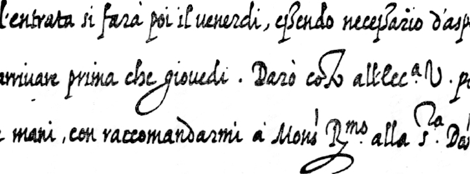 l'entrata si farà poi il uenerdi, essendo necessario d'asp
arriuare prima che giouedi. Darò all Ecc.a V. p
mani, con raccomandarmi a Mons.r R.mo alla S.ra Da